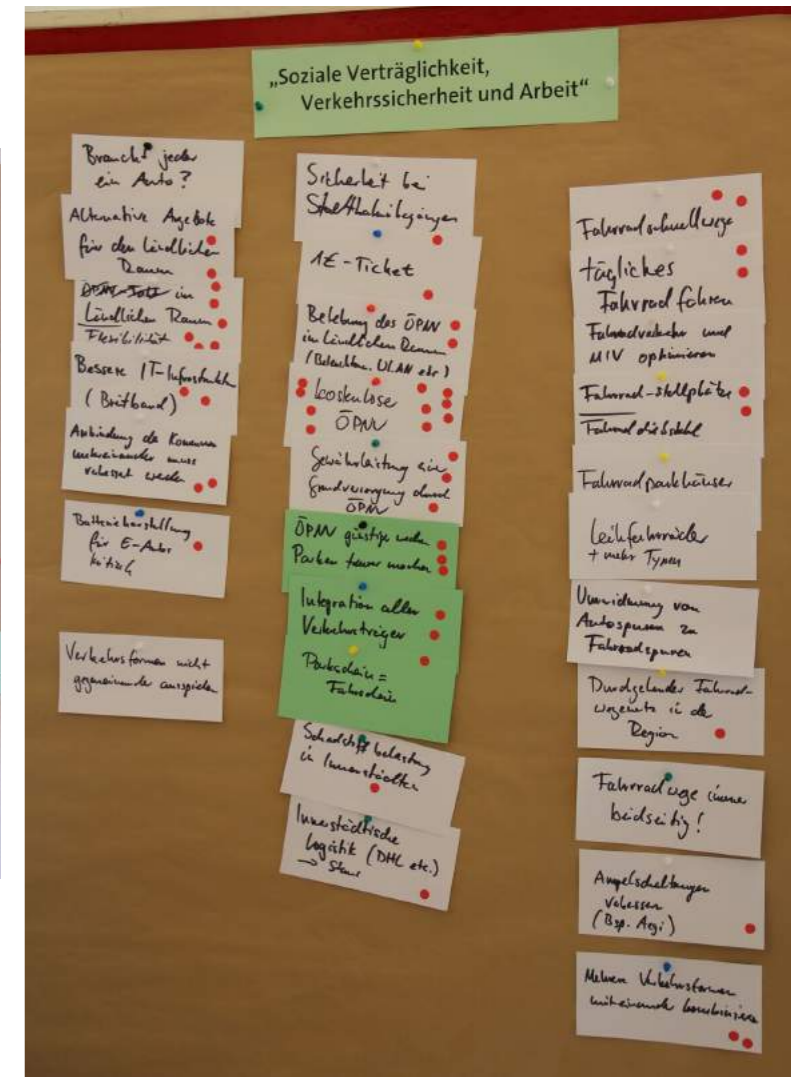 „Soziale Verträglichkeit,
Verkehrssicherheit und Arbeit“
Braucht jeder
ein Auto?
Alternative Angebote
für den Ländlichen
Raum
im
Ländlichen Raum
Flexibilität
Bessere IT-Infrastruktur
(Breitband)
Anbindung der Kommunen
untereinander muss
verbessert werden
Batterieherstellung
für E-Autos
kritisch
Verkehrsformen nicht
gegeneinander ausspielen
Sicherheit bei
Stadtbahnübergängen
1€-Ticket
Belebung des ÖPNV
im Ländlichen Raum
(Beleuchtun. WLAN etc.)
kostenlose
ÖPNV
Gewährleistung ein
Grundversorgung durch
ÖPNV
ÖPNV günstige machen
Parken teurer machen
Integration aller
Verkehrsträger
Parkschein =
Fahrschein
Schadstoffbelastung
in Innenstädten
Innerstädtische
Logistik (DHL etc.)
→ Stau
Fahrradschnellwege
tägliches
Fahrrad fahren
Fahrradverkehr und
MIV optimieren
Fahrrad-stellplätze
Fahrraddiebstahl
Fahrradparkhäuser
Leihfahrräder
+ mehr Typen
Umwidmung von
Autospuren zu
Fahrradspuren
Durchgehender Fahrrad-
wegenetz in der
Region
Fahrradwege immer
beidseitig!
Ampelschaltungen
verbessern
(Bsp. Aegi)
Mehrere Verkehrsformen
miteinander kombinieren